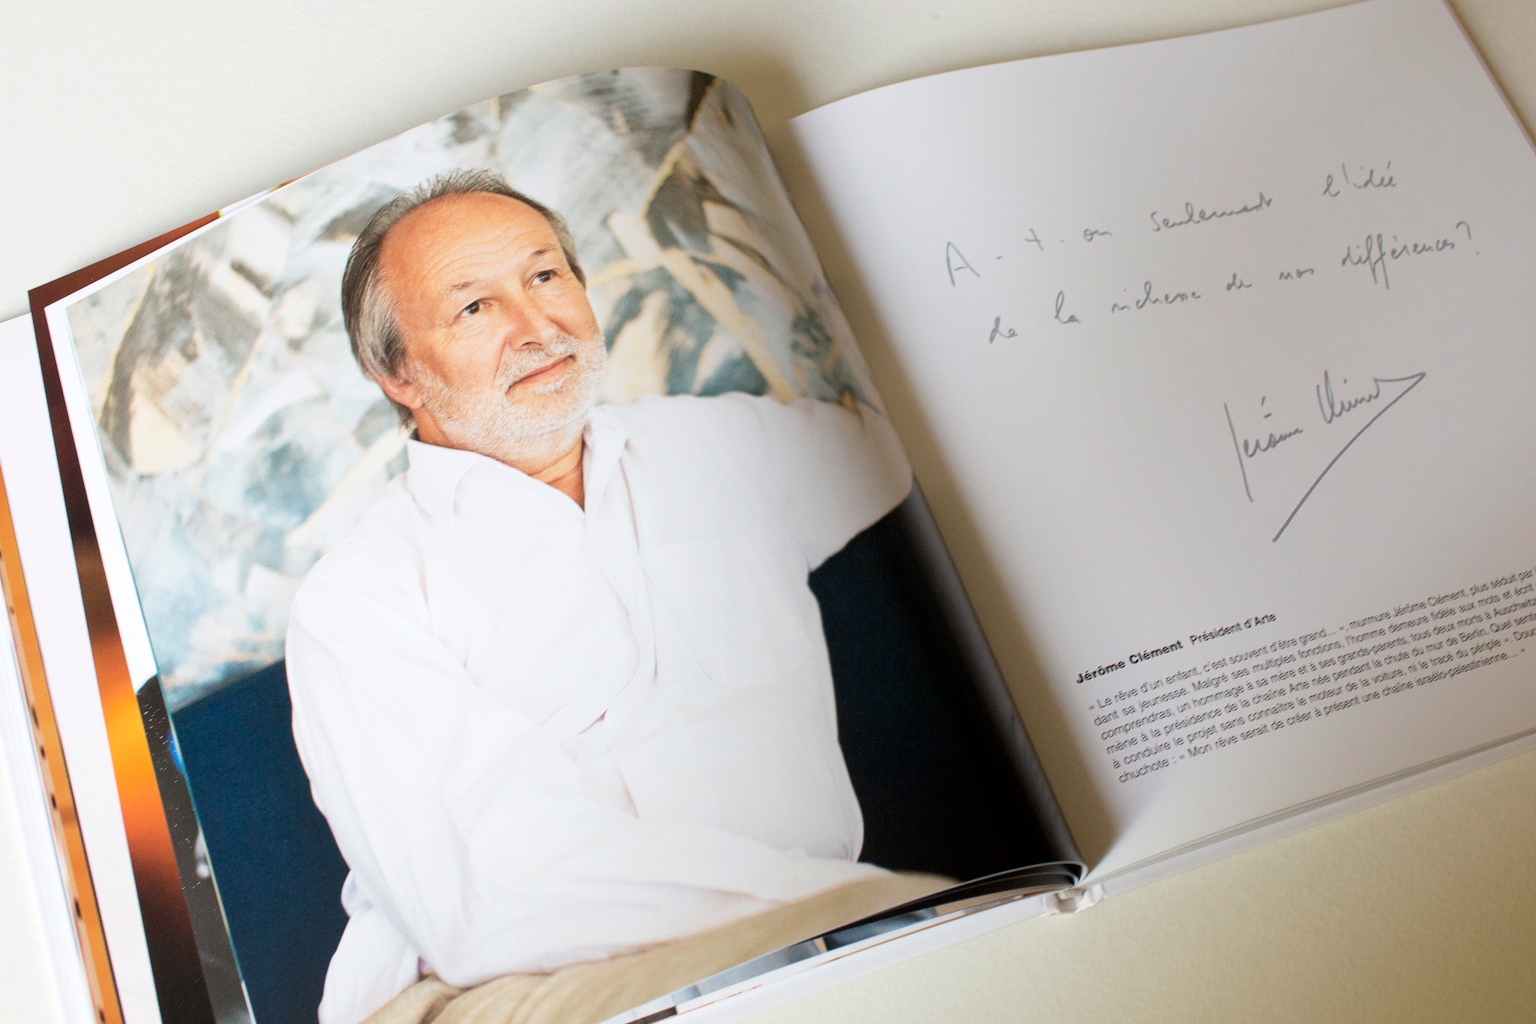 A-t-on seulement l'idée
de la richesse de nos différences?
Jérôme Clément
Jérôme Clément Président d'Arte
« Le rêve d'un enfant, c'est souvent d'être grand... », murmure Jérôme Clément, plus séduit par
dant sa jeunesse. Malgré ses multiples fonctions, l'homme demeure fidèle aux mots et écrit
comprendras, un hommage à sa mère et à ses grands-parents, tous deux morts à Auschwitz
mène à la présidence de la chaîne Arte née pendant la chute du mur de Berlin. Quel
à conduire le projet sans connaître le moteur de la voiture, ni le tracé du périple ».
chuchote : « Mon rêve serait de créer à présent une chaîne israélo-palestinienne... »